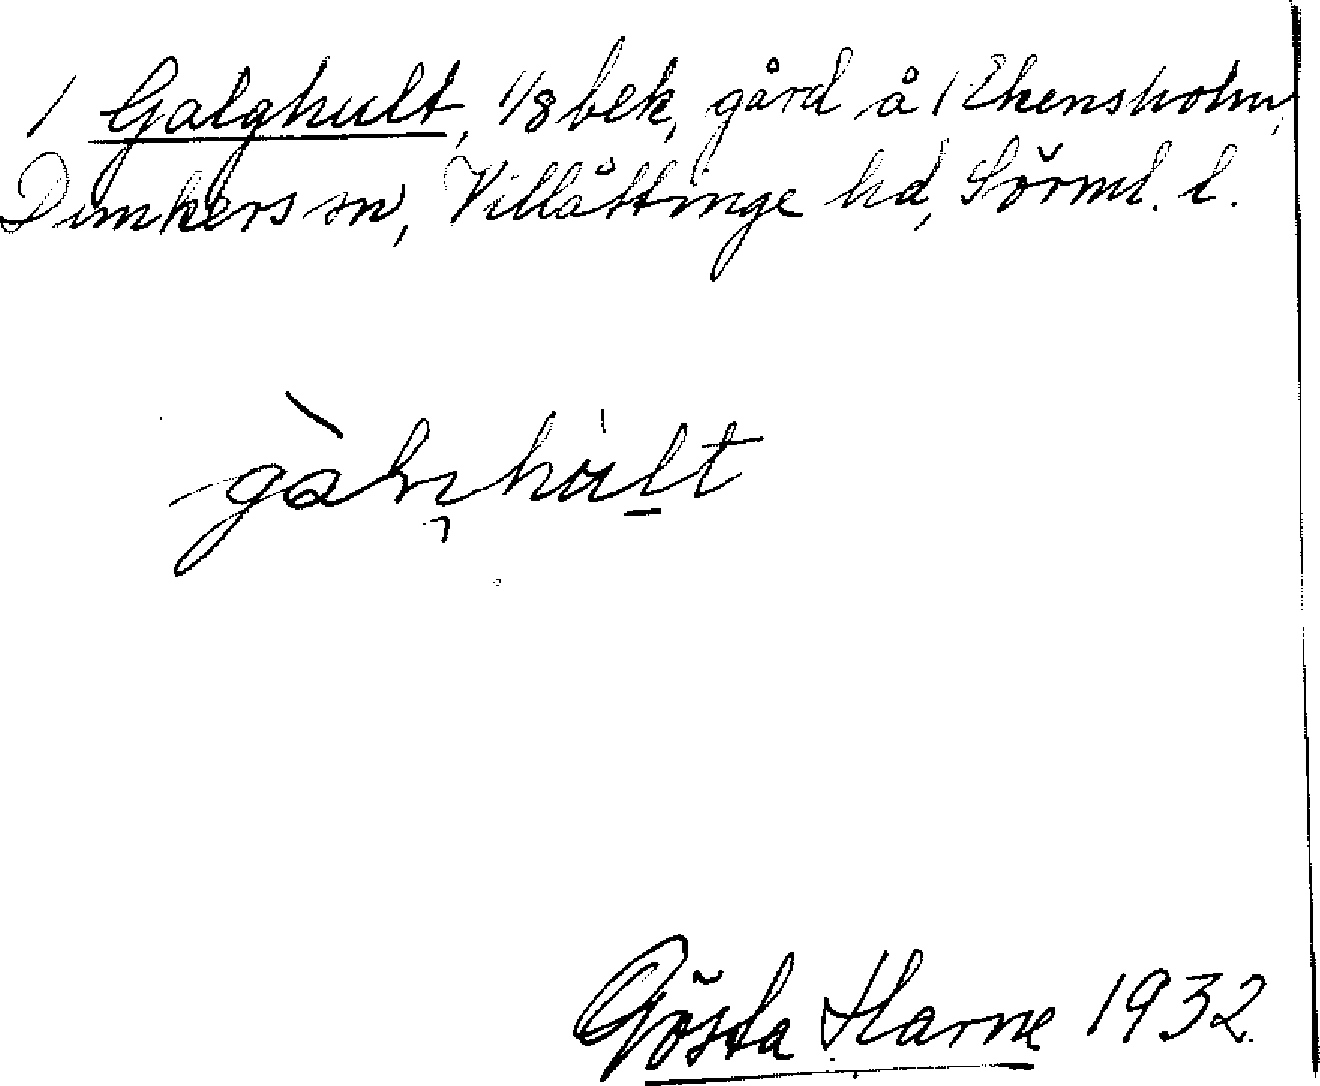 1 Galghult, 1/8 bek, gård å /Ekensholm,
Dunkers sn, Villåttinge hd, Sörml. l.
Gösta Harne 1932.